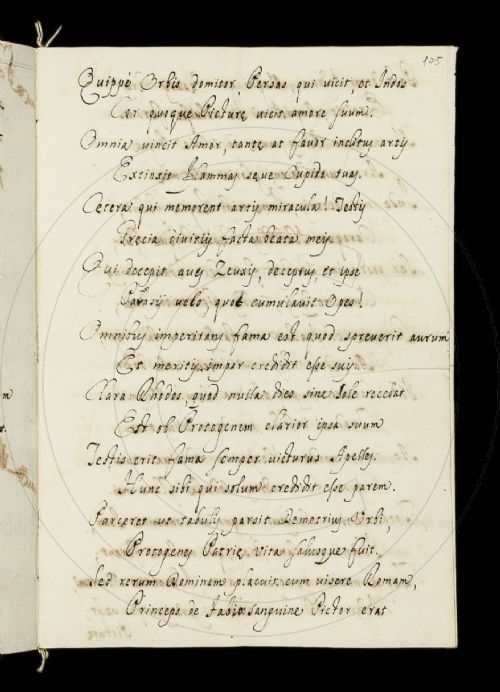 105
Quippè Orbis domitor, Persas qui vicit, et Indos
Est quoque Picturę vicit amore suum.
Omnia vincit Amor, tantę at favor inclytus artis
Extinxit flammas sęve Cupido tuas.
Cętera qui memorent artis miracula! Testis
Gręcia divitiis facta beata meis.
Qui decepit aves Zeuxis, deceptus, et ipse
Parrasii velo, quot cumulavit opes!
Omnibus imperitans fama est quod spreverit aurum
Et meritis impar credidit esse suis.
Clara Rhodos quod nulla dies sine Sole recedat
Est ob Protogenem clarior ipsa suum
Testis erit fama semper victurus Apelles.
Hunc sibi qui solum credidit esse parem.
Parceret ut tabulis parsit Demetrius Urbi,
Protogenes Patrię vita salusque fuit.
Sed rerum Dominam placuit cum visere Romam,
Princeps de Fabio sanguine Pictor erat